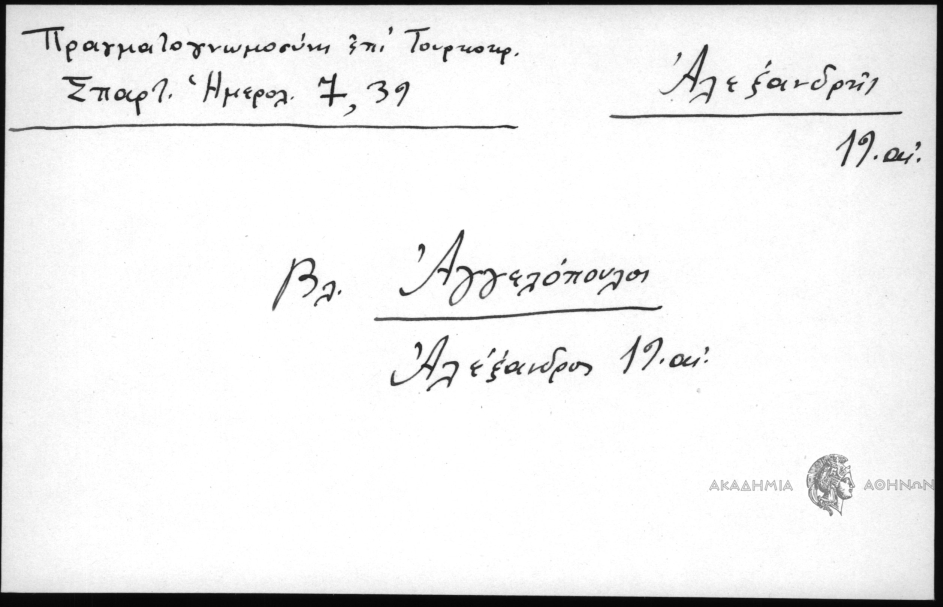 Πραγματογνωμοσύνη ἐπὶ Τουρκοκρ.
Σπαρτ. Ἡμερολ. 7, 39
Ἀλεξανδρῆς
19. αἰ.
Βλ. Ἀγγελόπουλος
Ἀλέξανδρος 19. αἰ.
ΑΚΑΔΗΜΙΑ ΑΘΗΝΩΝ